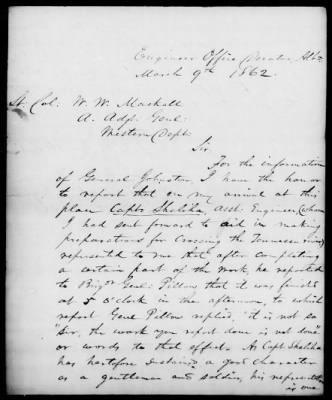 Engineer Office Decatur, Ala
March 9th 1862.
Lt. Col: W. W. Mackall
A. Adjt. Genl:
Western Dept:
Sir.
For the information
of General Johnston I have the honor
to report that on my arrival at this
place Capt: Sheliha, asst. Engineer, (whom
I had sent forward to aid in making
preparations for crossing the Tennessee river)
represented to me that after completing
a certain part of the work, he reported
to Brigr Genl: Pillow that it was finished
at 5 o'clock in the afternoon, to which
report Genl Pillow replied, "it is not so
"Sir, the work you report done is not done"
or words to that effect. As Capt. Sheliha
has heretofore sustained a good character
as a gentleman and soldier, his representation
is one